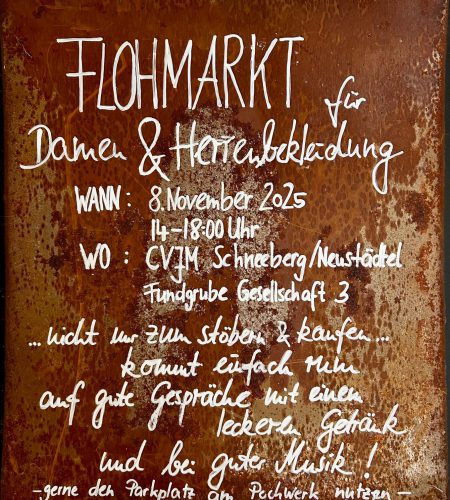 FLOHMARKT für
Damen & Herrenbekleidung
WANN: 8. November 2025
14-18:00 Uhr
WO: CVJM Schneeberg/Neustädtel
Fundgrube Gesellschaft 3
...nicht nur zum stöbern & kaufen...
kommt einfach rum
auf gute Gespräche mit einem
leckeren Getränk
und bei guter Musik!
-gerne den Parkplatz am Pochwerk nutzen